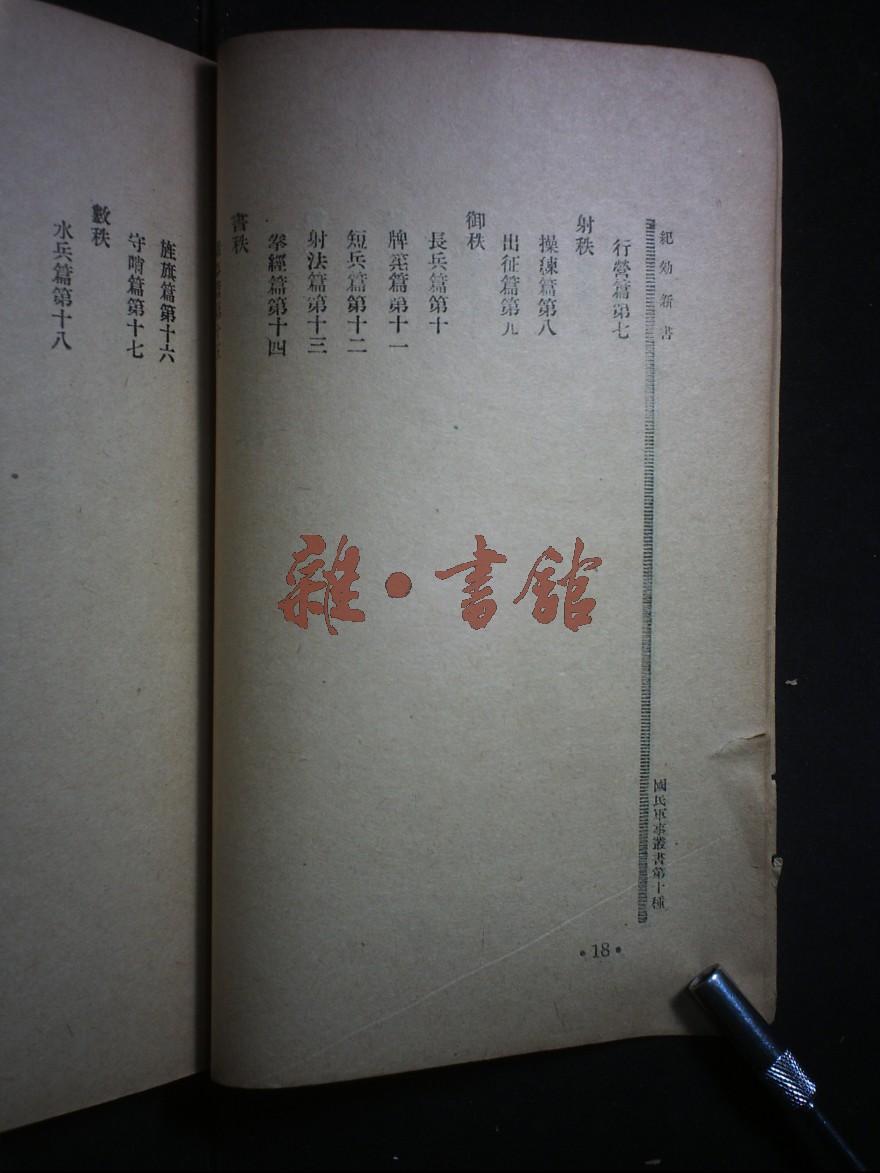 紀効新書
國民軍事叢書第十種
行營篇第七
射秩
操練篇第八
出征篇第九
御秩
長兵篇第十
牌筅篇第十一
短兵篇第十二
射法篇第十三
拳經篇第十四
書秩
旌旗篇第十六
守哨篇第十七
數秩
水兵篇第十八
雜·書館
·18·